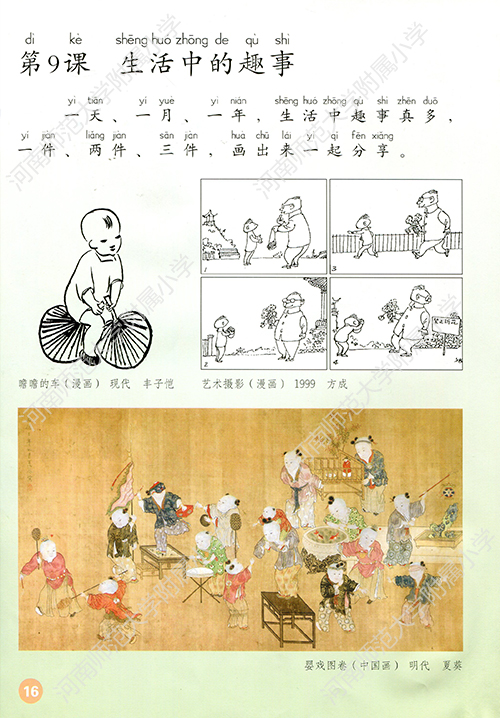 dì kè shēng huó zhōng de qù shì
第9课 生活中的趣事
yì tiān yí yuè yì nián shēng huó zhōng qù shì zhēn duō
一天、一月、一年，生活中趣事真多，
yí jiàn liǎng jiàn sān jiàn huà chū lái yì qǐ fēn xiǎng
一件、两件、三件，画出来一起分享。
1 3
2 4
瞻瞻的车（漫画） 现代 丰子恺
艺术摄影（漫画） 1999 方成
婴戏图卷（中国画） 明代 夏葵
16
河南师范大学附属小学